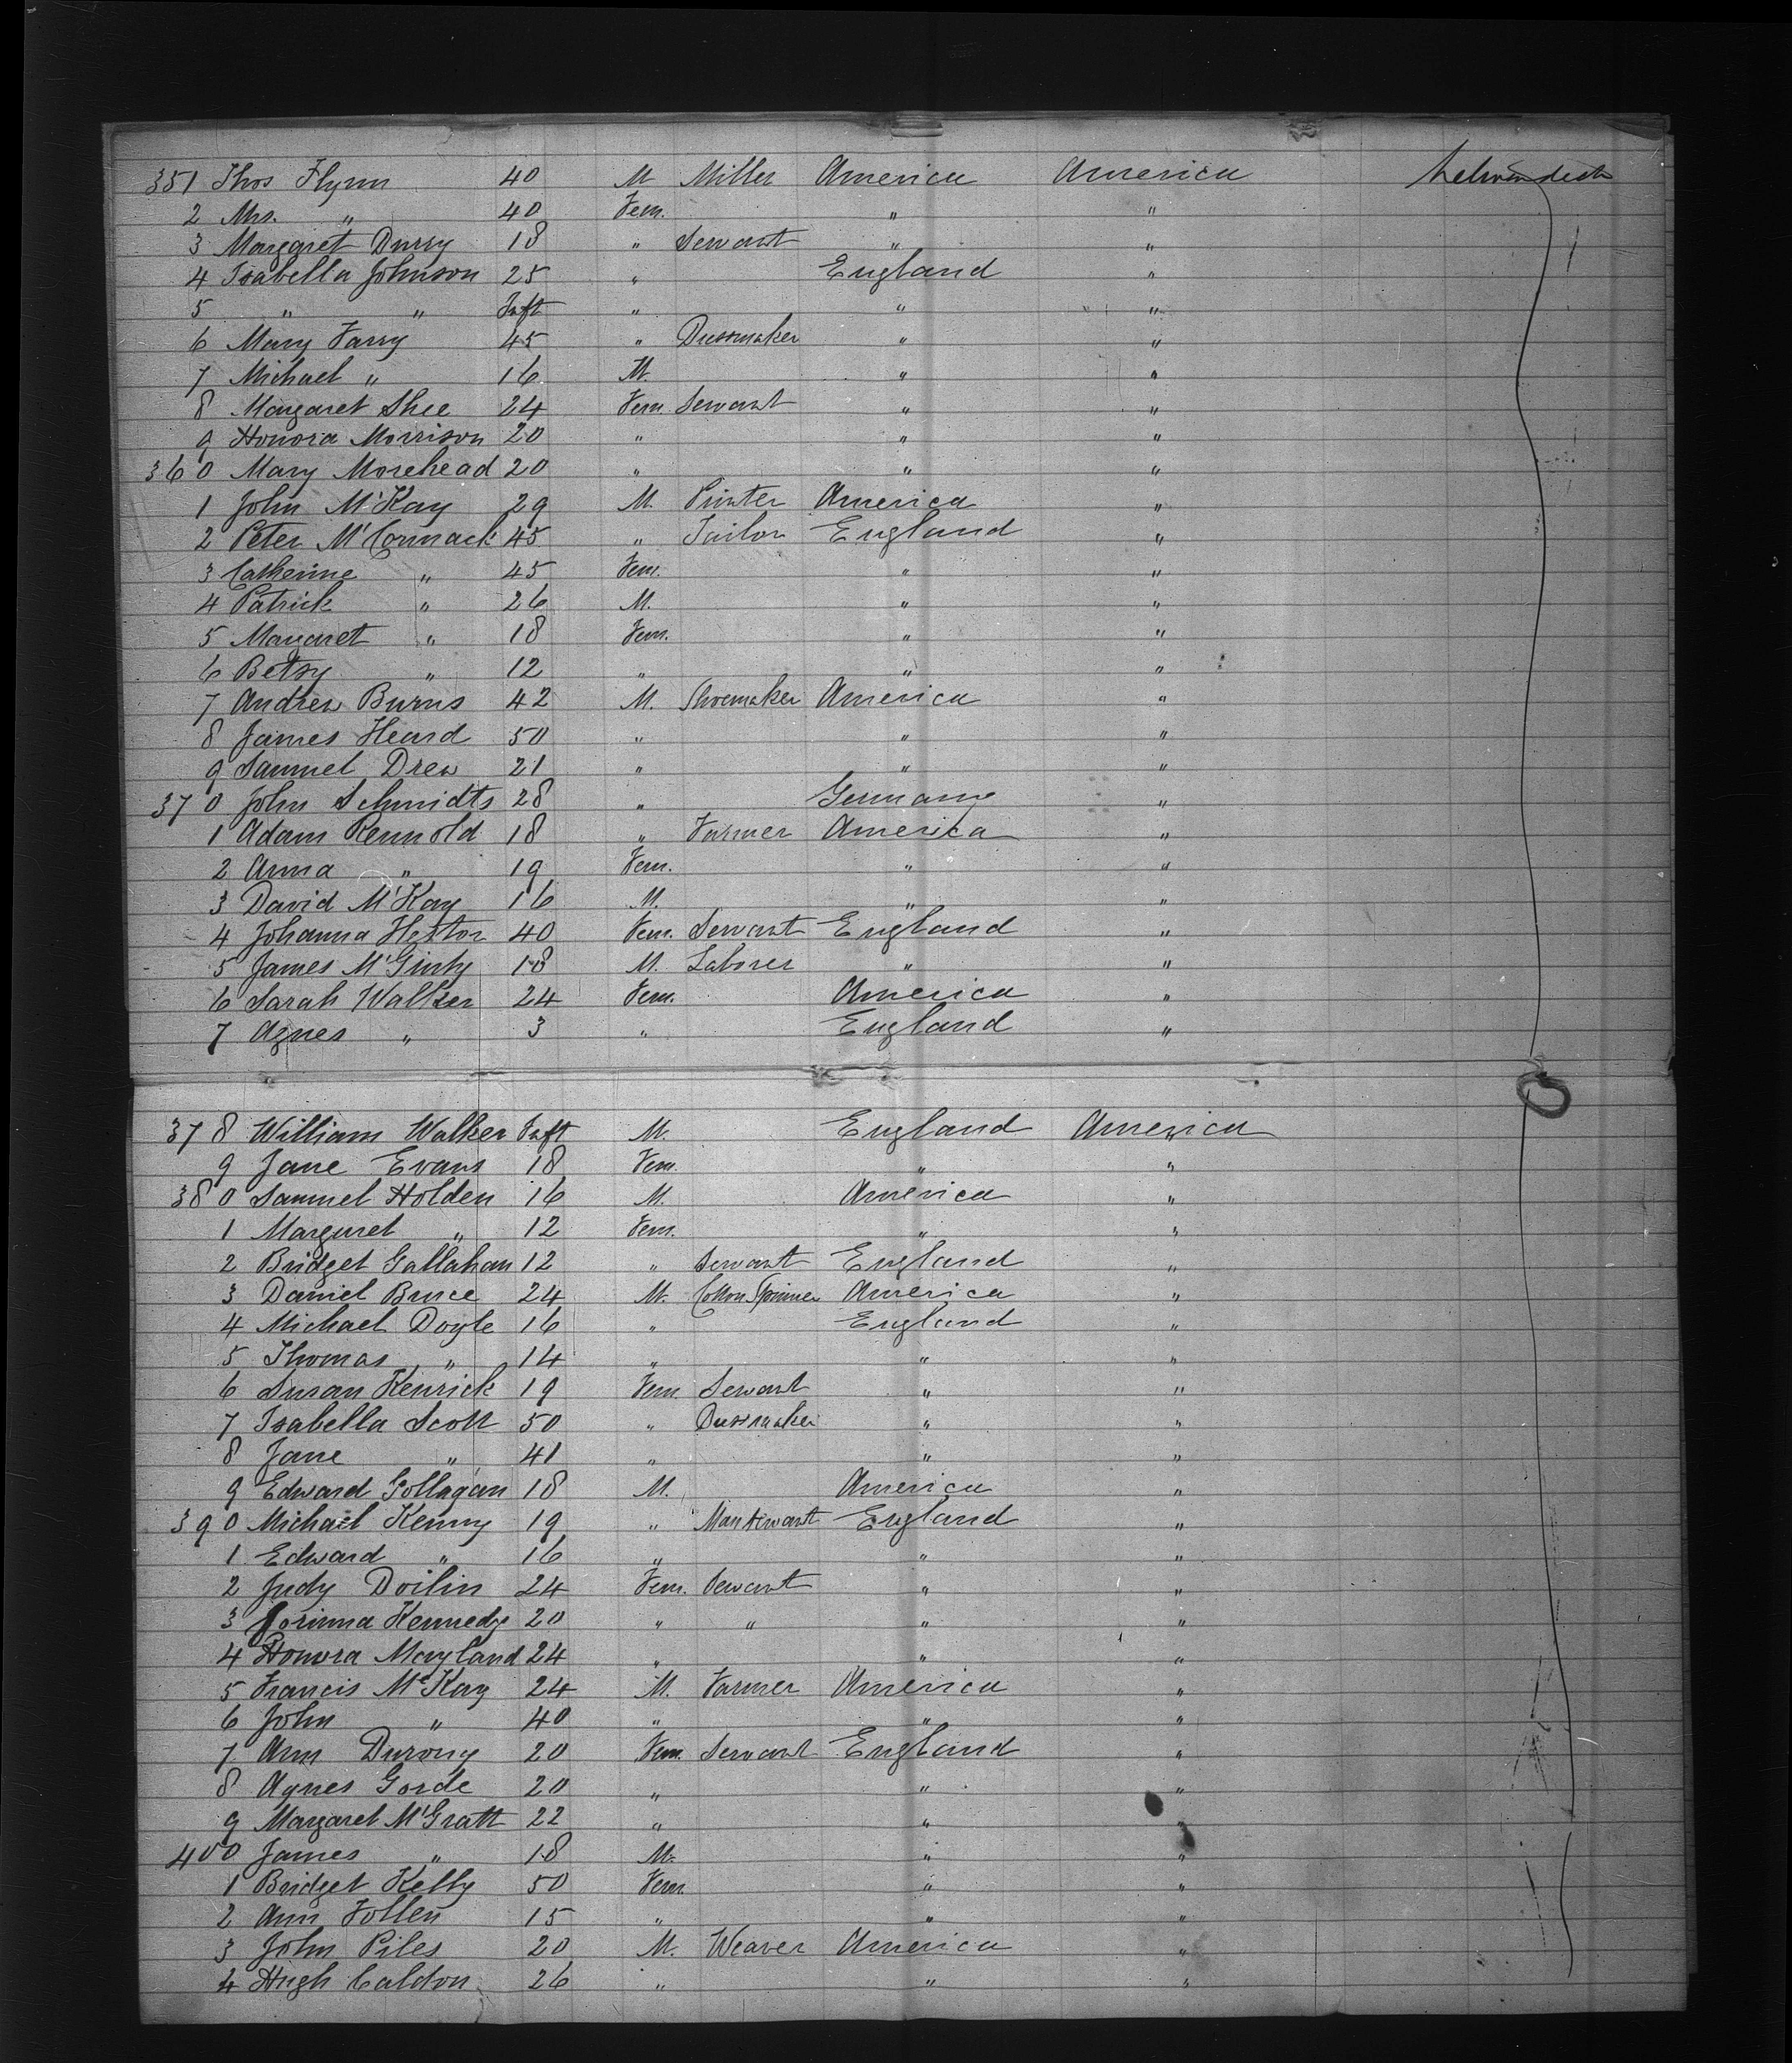 351 Thos Flynn 40 M Miller America America
2 Mrs. " 40 Fem. " "
3 Margaret Durry 18 " Servant " "
4 Isabella Johnson 25 " England "
5 " " Inft " " "
6 Mary Farry 45 " Dressmaker " "
7 Michael " 16 M. " "
8 Margaret Shee 24 Fem Servant " "
9 Honora Morrison 20 " " "
360 Mary Morehead 20 " " "
1 John M'Kay 29 M. Printer America "
2 Peter M'Cormack 45 " Tailor England "
3 Catherine " 45 Fem. " "
4 Patrick " 26 M. " "
5 Margaret " 18 Fem. " "
6 Betsy " 12 " " "
7 Andrew Burns 42 M. Shoemaker America "
8 James Heard 50 " " "
9 Samuel Drew 21 " " "
370 John Schmidts 28 " Germany "
1 Adam Rennold 18 " Farmer America "
2 Anna " 19 Fem. " "
3 David M'Kay 16 M. " "
4 Johanna Hector 40 Fem. Servant England "
5 James M'Ginty 18 M. Laborer " "
6 Sarah Walker 24 Fem. America "
7 Agnes " 3 " England "
378 William Walker Inft M. England America
9 Jane Evans 18 Fem. " "
380 Samuel Holden 16 M. America "
1 Margaret " 12 Fem. " "
2 Bridget Gallahan 12 " Servant England "
3 Daniel Bruce 24 M. Cotton Spinner America "
4 Michael Doyle 16 " England "
5 Thomas " 14 " " "
6 Susan Kenrick 19 Fem. Servant " "
7 Isabella Scott 50 " Dressmaker " "
8 Jane " 41 " " "
9 Edward Gollagan 18 M. America "
390 Michael Kenny 19 " Manservant England "
1 Edward " 16 " " "
2 Judy Doilin 24 Fem. Servant " "
3 Corinna Kennedy 20 " " " "
4 Honora Mayland 24 " " "
5 Francis McKay 24 M. Farmer America "
6 John " 40 " " "
7 Ann Durony 20 Fem. Servant England "
8 Agnes Gorde 20 " " "
9 Margaret M'Gratt 22 " " "
400 James " 18 M. " "
1 Bridget Kelly 50 Fem " "
2 Ann Follen 15 " " "
3 John Piles 20 M. Weaver America "
4 Hugh Caldon 26 " " "